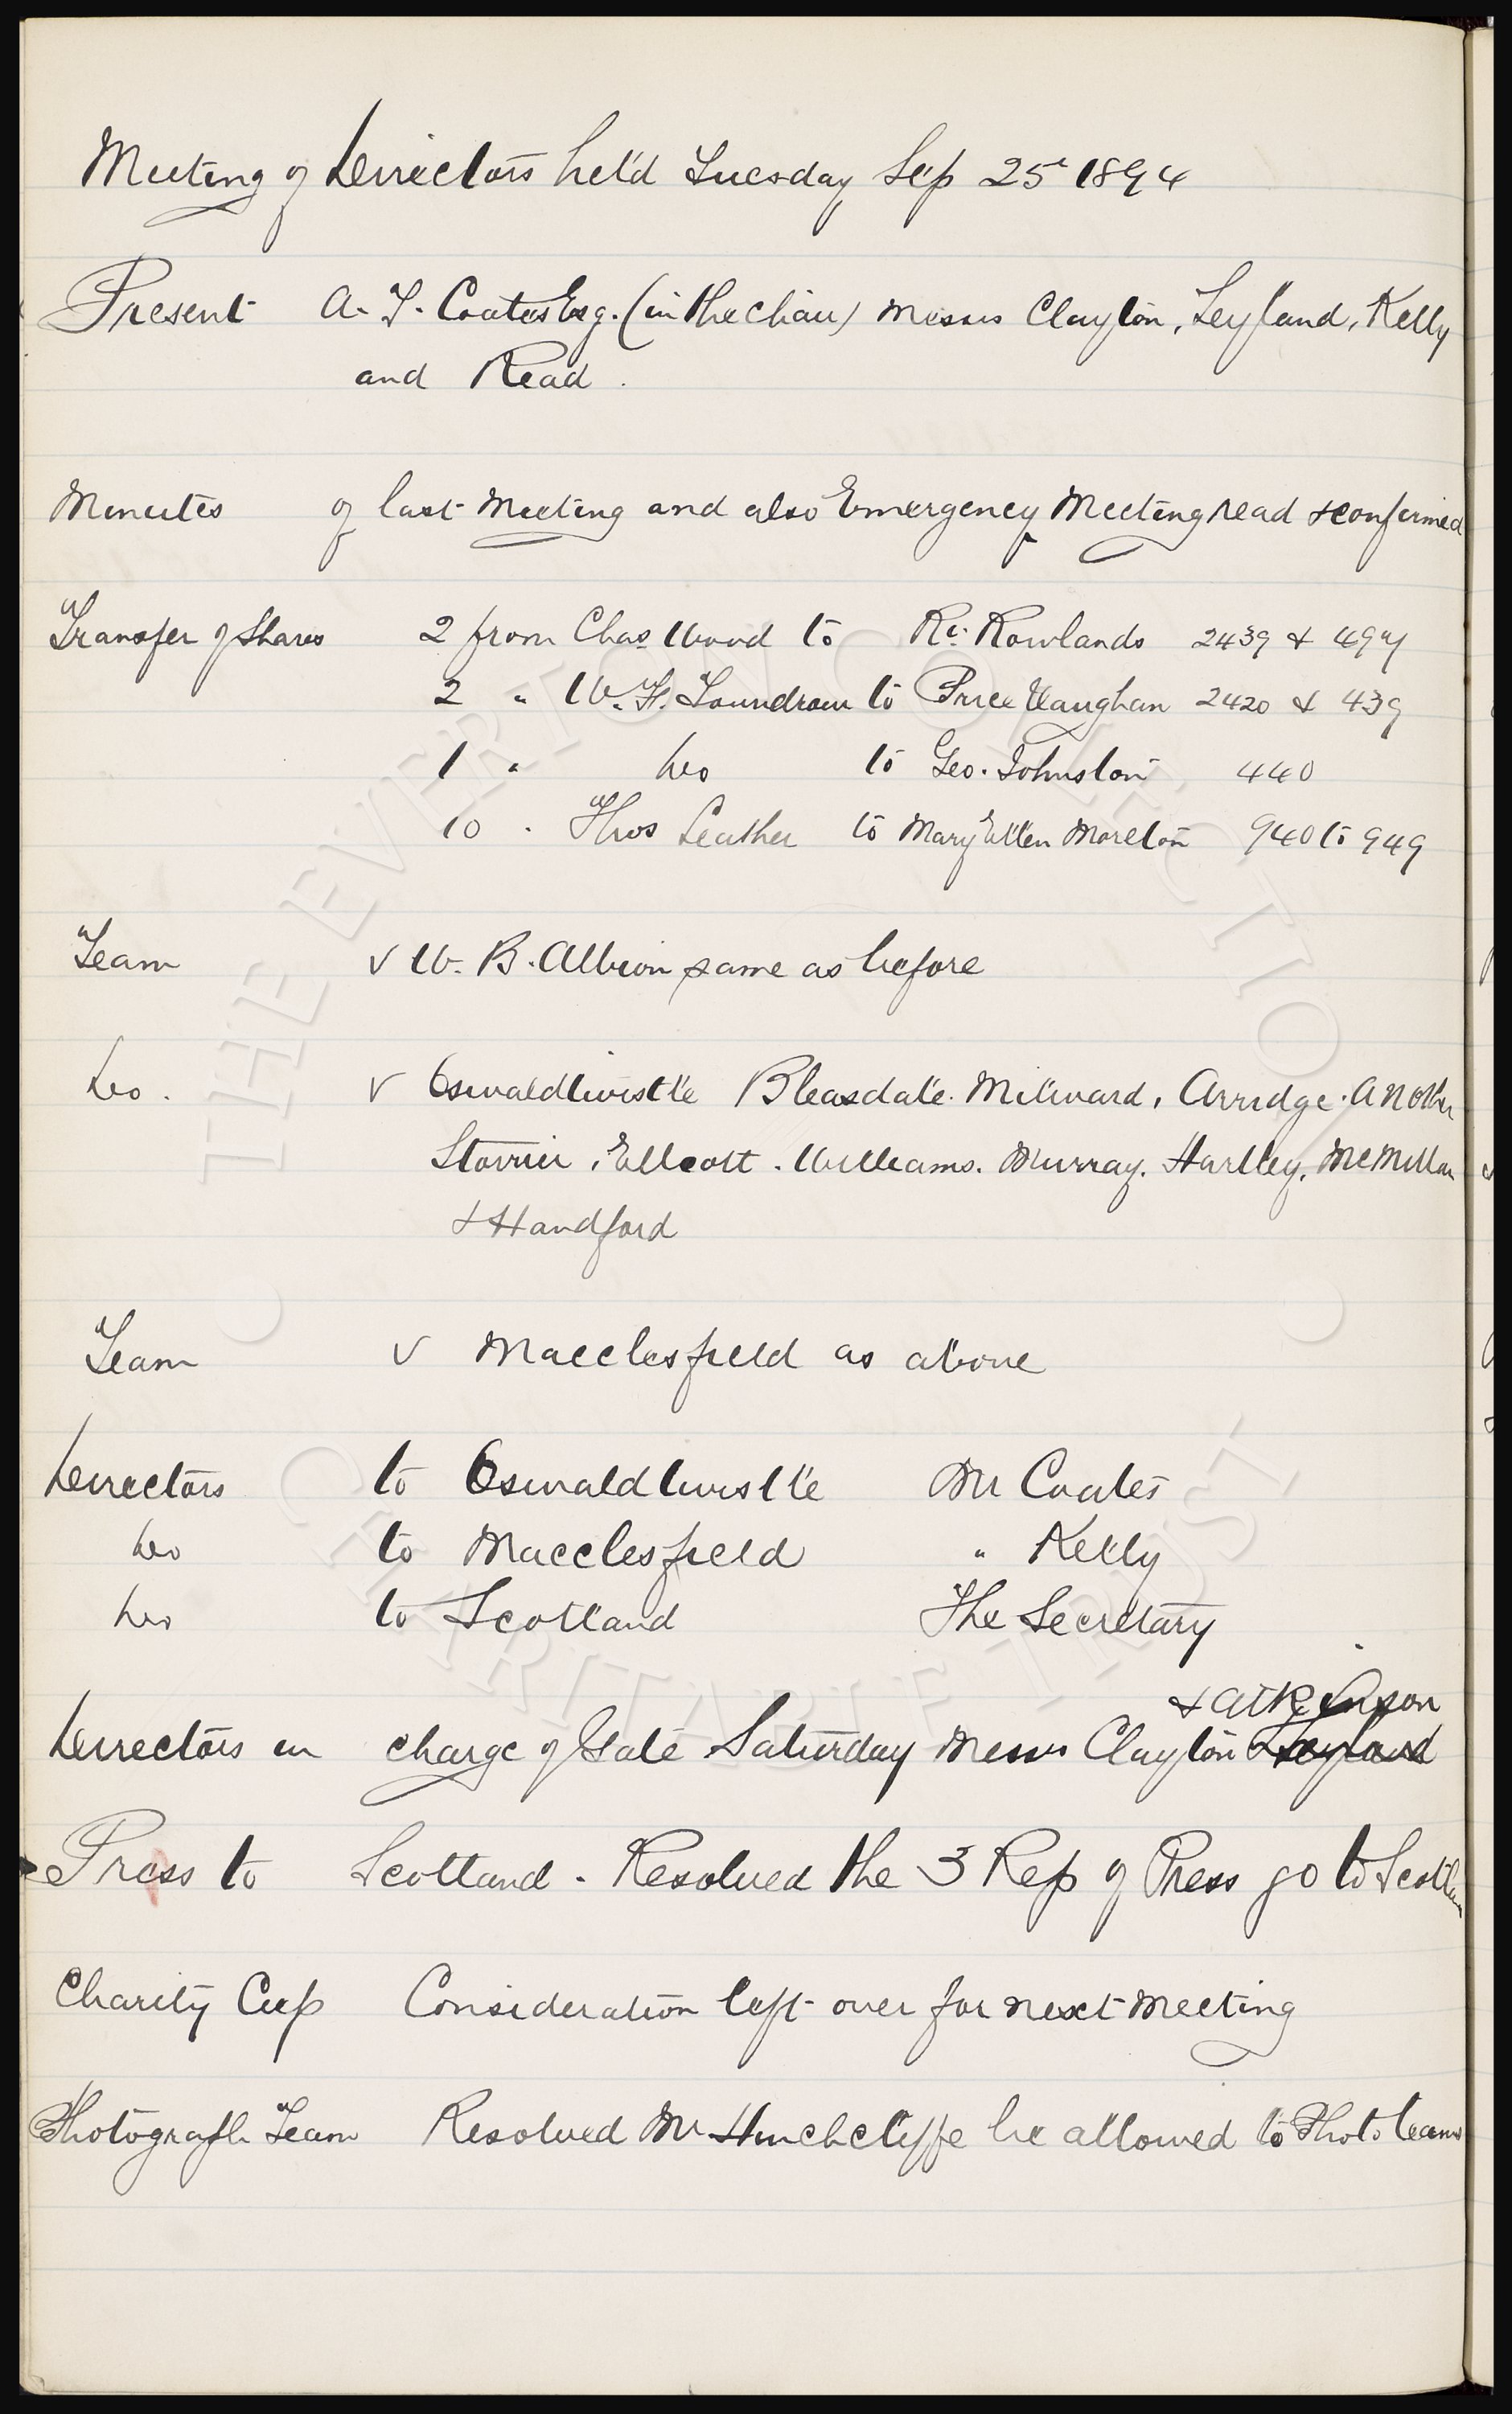 Meeting of Directors held Tuesday Sep 25th 1894
Present A. T. Coates Esq. (in the chair) Messrs Clayton, Leyland, Kelly
and Read.
Minutes of last Meeting and also Emergency Meeting read & confirmed
Transfer of Shares 2 from Chas Wood to Rt. Rowlands 2439 & 497
2 " W. H. Loundraw to Price Vaughan 2420 & 439
1 " Do to Geo. Johnston 440
10 " Thos Leather to Mary Ellen Morelon 940 to 949
Team v W. B. Albion same as before
Do. v Oswaldtwistle Bleasdale. Milward, Arridge. A N Other
Storrier, Ellcott. Williams. Murray. Hartley, McMillan
& Handford
Team v Macclesfield as above
Directors to Oswaldtwistle Mr Coates
Do to Macclesfield " Kelly
Do to Scotland The Secretary
& Atkinson
Directors in charge of Gate Saturday Messrs Clayton Leyland
Press to Scotland. Resolved the 3 Rep of Press go to Scotland
Charity Cup Consideration left over for next meeting
Photograph Team Resolved Mr Hinchcliffe be allowed to Photo teams
THE EVERTON COLLECTION
CHARITABLE TRUST